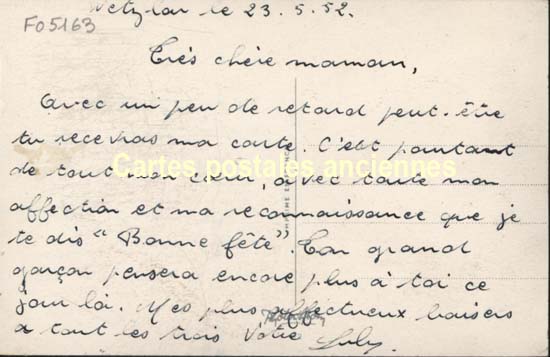 Wetzlar le 23.5.52.
F05163
Très chère maman,
Avec un peu de retard peut-être
tu recevras ma carte. C'est pourtant
Cartes postales anciennes
de tout mon cœur, avec toute mon
affection et ma reconnaissance que je
te dis "Bonne fête". Ton grand
garçon pensera encore plus à toi ce
jour là. Mes plus affectueux baisers
à tout les trois Votre